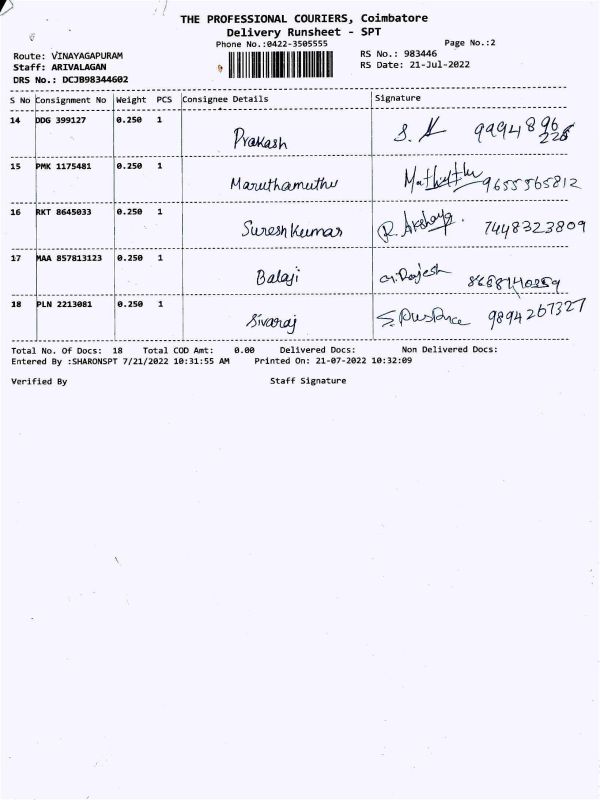 THE PROFESSIONAL COURIERS, Coimbatore
Delivery Runsheet - SPT
Phone No.:0422-3505555 Page No.:2
Route: VINAYAGAPURAM RS No.: 983446
Staff: ARIVALAGAN RS Date: 21-Jul-2022
DRS No.: DCJB98344602
S No Consignment No Weight PCS Consignee Details Signature
14 DDG 399127 0.250 1 Prakash 9994896
15 PMK 1175481 0.250 1 Maruthamuthu 9655565812
16 RKT 8645033 0.250 1 Suresh Kumar R. Akshaya. 7448323809
17 MAA 857813123 0.250 1 Balaji Rajesh
18 PLN 2213081 0.250 1 Sivaraj 9894267327
Total No. Of Docs: 18 Total COD Amt: 0.00 Delivered Docs: Non Delivered Docs:
Entered By :SHARONSPT 7/21/2022 10:31:55 AM Printed On: 21-07-2022 10:32:09
Verified By Staff Signature